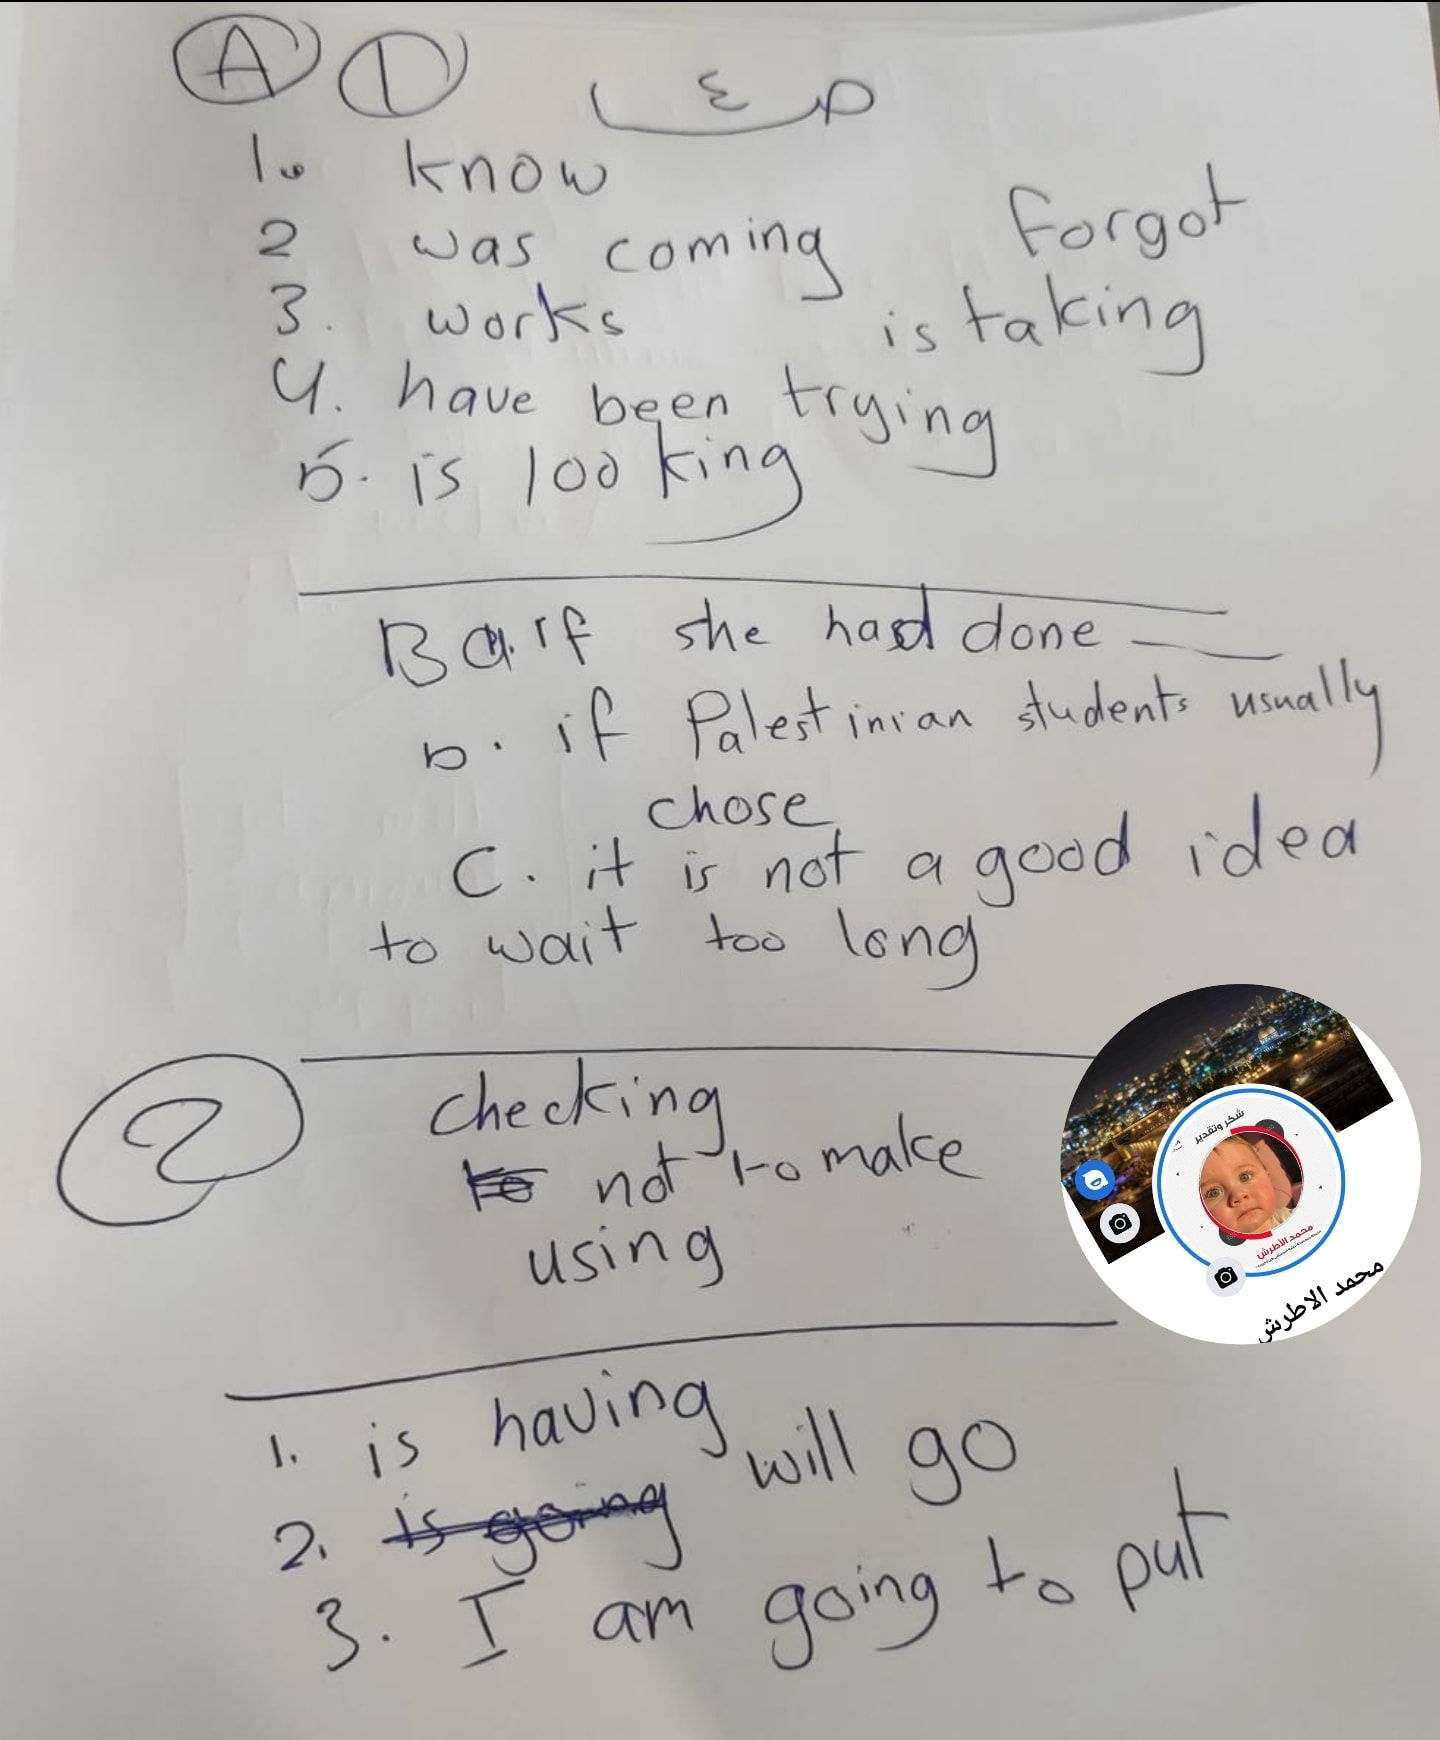 A 1
1. know
2 was coming forgot
3. works is taking
4. have been trying
5. is looking
B a. if she had done
b. if Palestinian students usually
chose
C. it is not a good idea
to wait too long
2
checking
not to make
using
1. is having
2. is going will go
3. I am going to put
شكر وتقدير
محمد الأطرش
محمد الاطرش